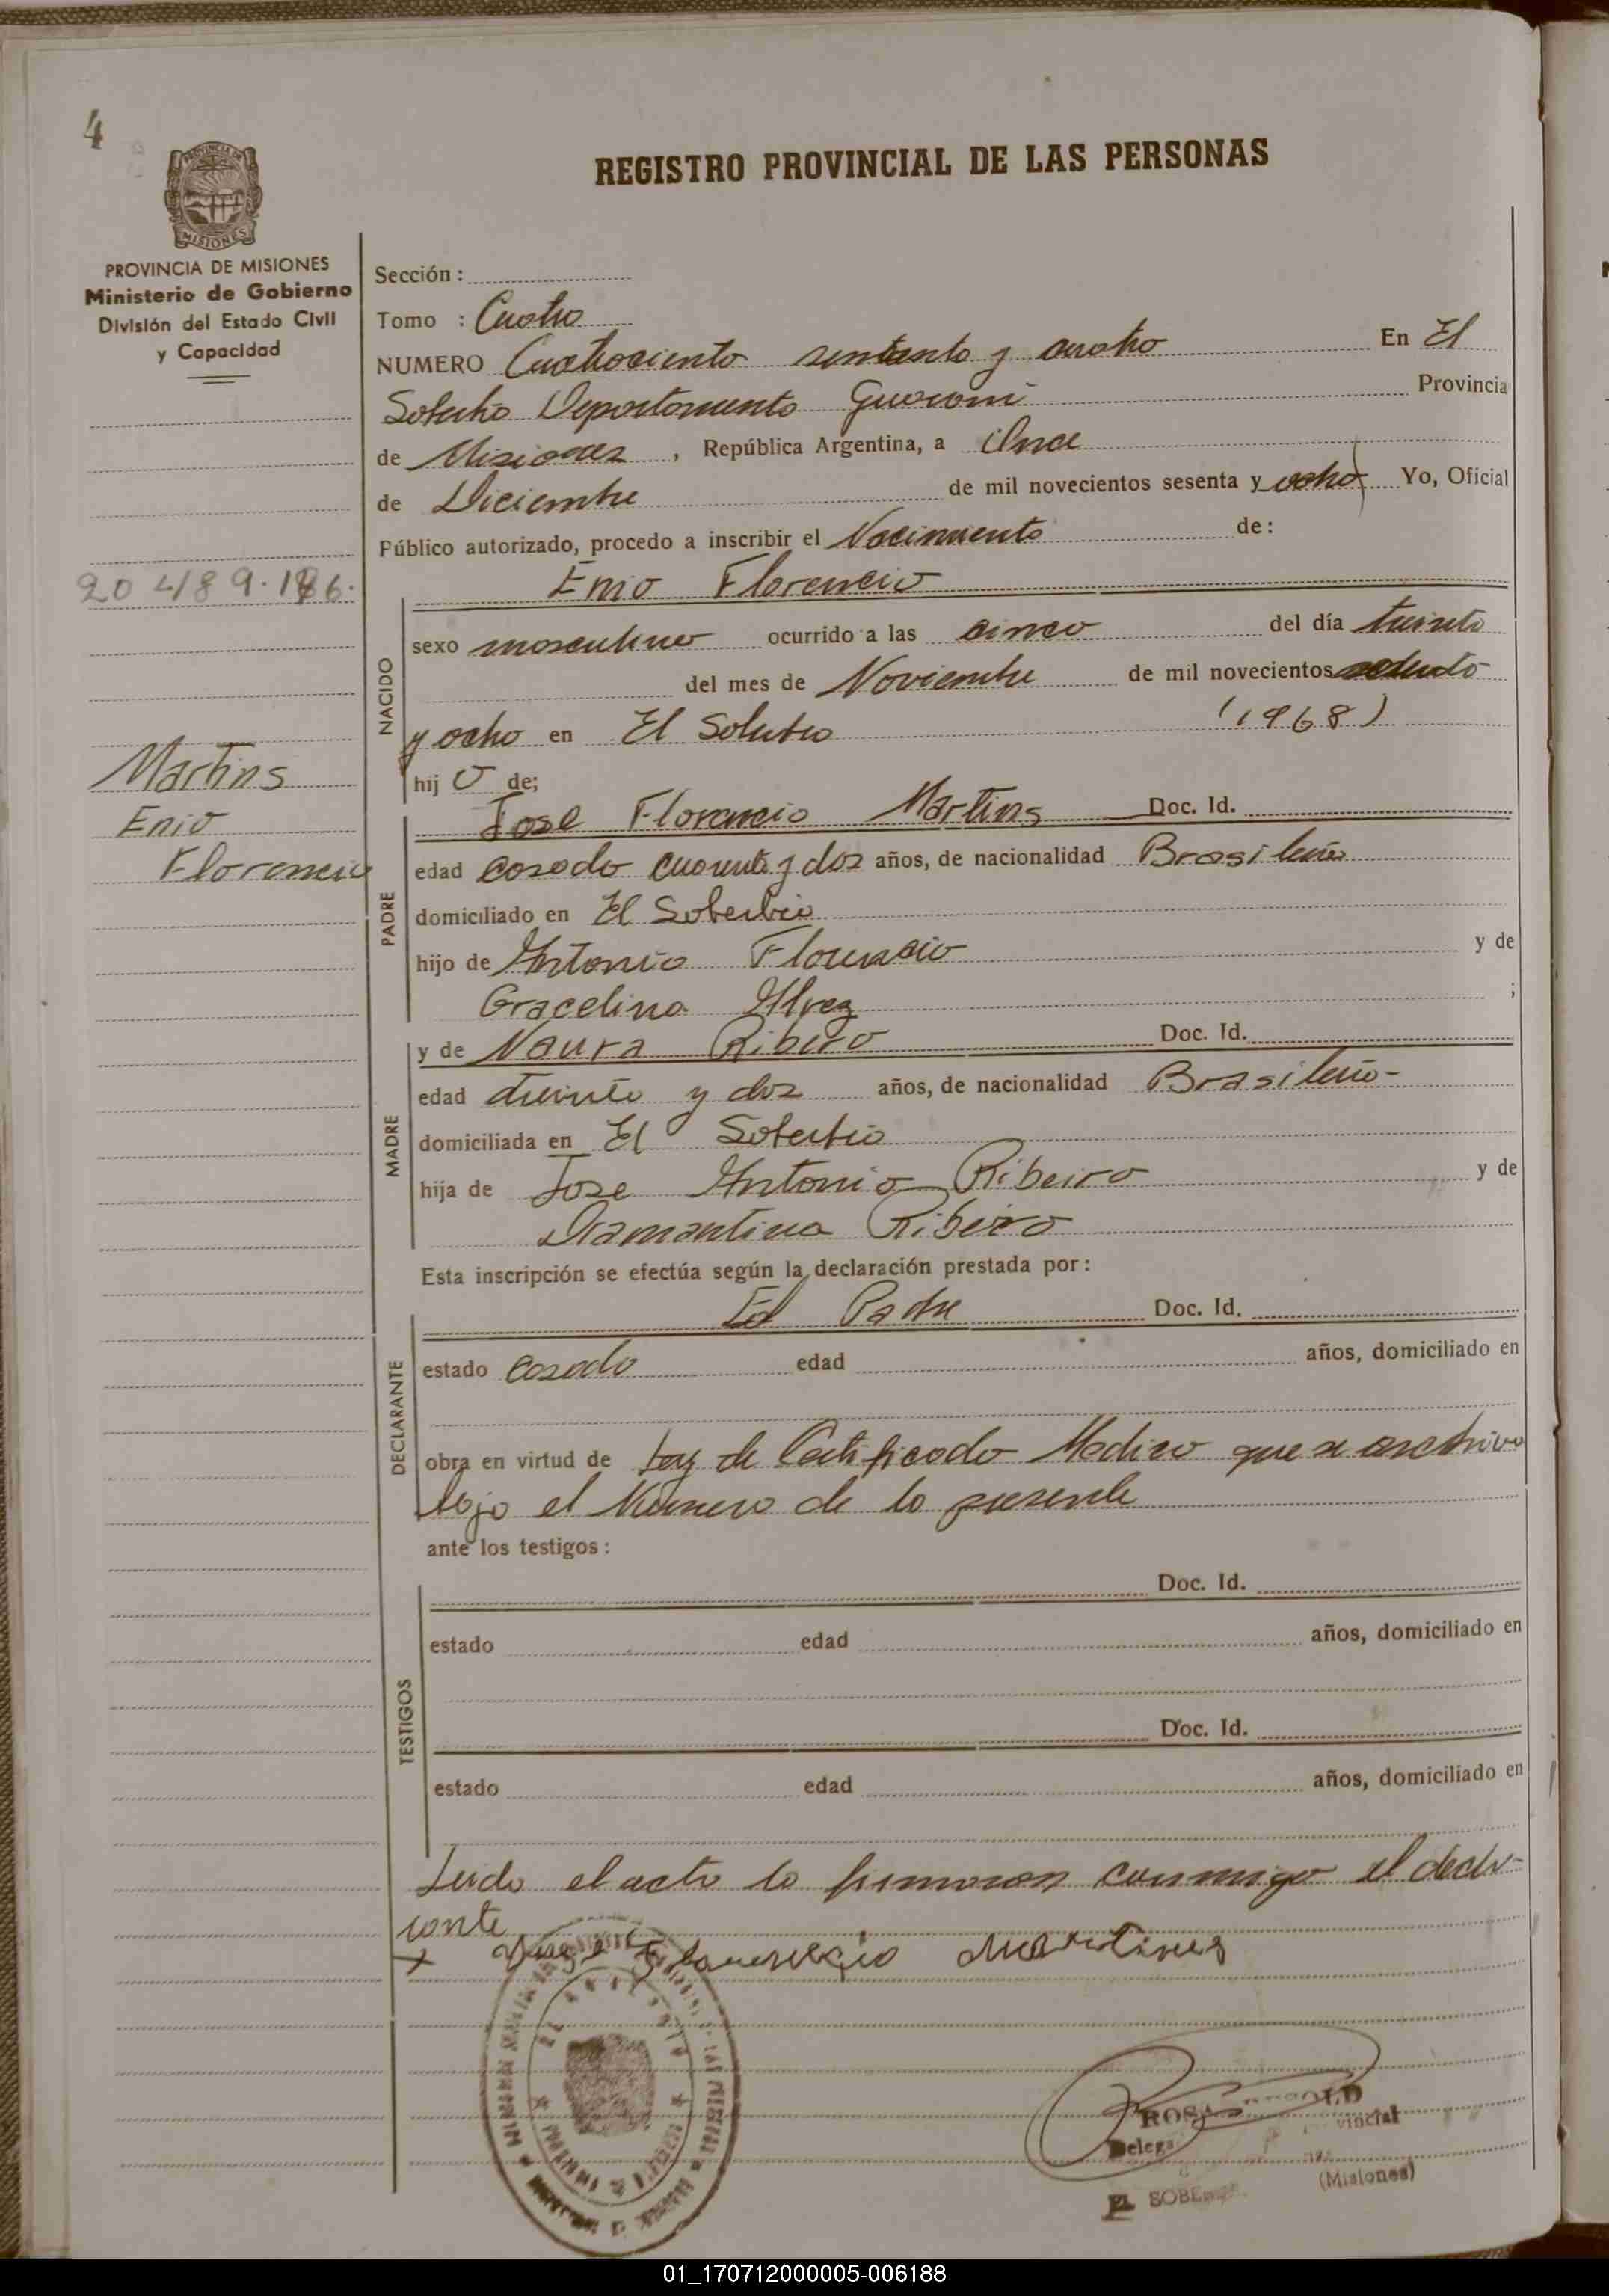 4
REGISTRO PROVINCIAL DE LAS PERSONAS
PROVINCIA DE
MISIONES
PROVINCIA DE MISIONES
Ministerio de Gobierno
División del Estado Civil
y Capacidad
204189.186.
Martins
Enio
Florencio
Sección :
Tomo : Cuatro
NUMERO Cuatrociento sententa y cuatro En El
Soberbio Departamento Guarani Provincia
de Misiones , República Argentina, a Once
de Diciembre de mil novecientos sesenta y ocho Yo, Oficial
Público autorizado, procedo a inscribir el Nacimiento de :
Enio Florencio
NACIDO
sexo masculino ocurrido a las cinco del día treinta
del mes de Noviembre de mil novecientos
y ocho en El Soberbio (1968)
hij o de;
Jose Florencio Martins Doc. Id.
PADRE
edad casado cuarenta y dos años, de nacionalidad Brasileño
domiciliado en El Soberbio
hijo de Antonio Florencio y de
Gracelina Alvez ;
y de Naura Ribero Doc. Id.
MADRE
edad treinta y dos años, de nacionalidad Brasileño-
domiciliada en El Soberbio
hija de Jose Antonio Ribeiro y de
Diamantina Ribeiro
Esta inscripción se efectúa según la declaración prestada por :
El Padre Doc. Id.
DECLARANTE
estado casado edad años, domiciliado en
obra en virtud de Ley de Certificado Medico que se archiva
bajo el Número de la presente
ante los testigos :
Doc. Id.
TESTIGOS
estado edad años, domiciliado en
Doc. Id.
estado edad años, domiciliado en
Leida el acta la firmaron conmigo el decla-
rante
x Jose Florencio Martins
ROSA
Delega vincial
EL SOBE (Misiones)
01_170712000005-006188